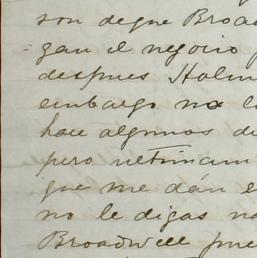 son de que Broad
gan el negocio
despues Holm
embargo no l
hace algunos d
pero ultimam
que me dán e
no le digas na
Broadwell pue